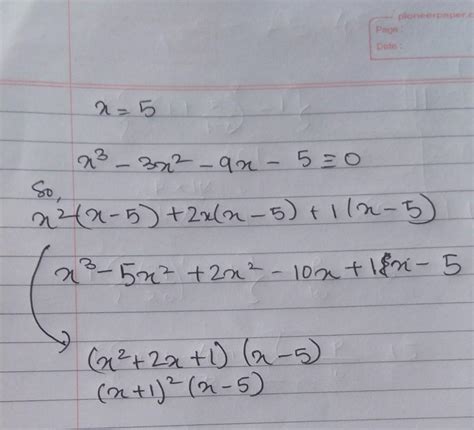 pioneerpaper.c
Page :
Date :
x = 5
x³ - 3x² - 9x - 5 = 0
So,
x²(x-5) + 2x(x-5) + 1(x-5)
x³ - 5x² + 2x² - 10x + 1x - 5
(x² + 2x + 1) (x-5)
(x+1)² (x-5)